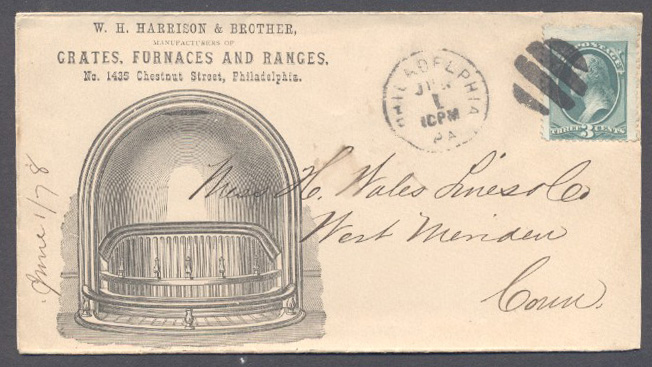 W. H. HARRISON & BROTHER,
MANUFACTURERS OF
GRATES, FURNACES AND RANGES,
No. 1435 Chestnut Street, Philadelphia.
PHILADELPHIA
JUN
1
10PM
PA
POSTAGE
THREE 3 CENTS
June 1/78
H. Wales Lines & Co
West Meriden
Conn.